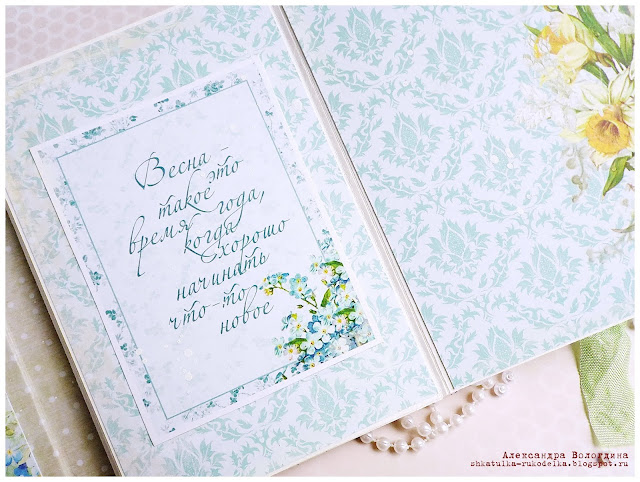 Весна -
такое это
время года,
когда хорошо
начинать
что-то
новое
Александра Вологдина
shkatulka-rukodelka.blogspot.ru